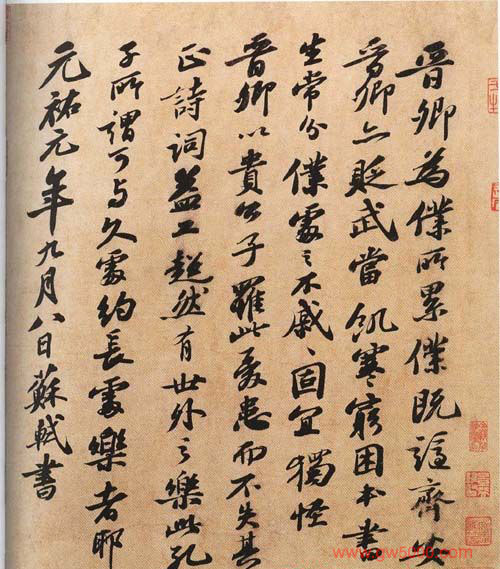 晉卿為僕所累僕既謫齊安
晉卿亦貶武當飢寒窮困本書
生常分僕處之不戚〻固宜獨怪
晉卿以貴公子罹此憂患而不失其
正詩詞益工超然有世外之樂此孔
子所謂可与久處約長處樂者耶
元祐元年九月八日蘇軾書
www.gw5000.com